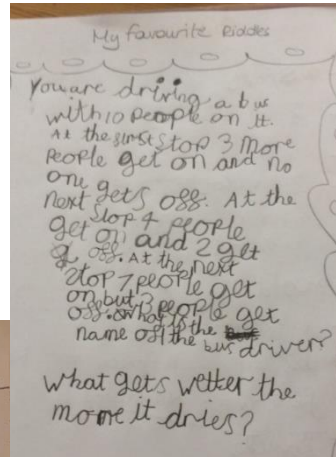 My favourite Riddles
You are driving a bus
with 10 people on it.
At the first stop 3 more
people get on and no
one gets off. At the
next stop 4 people
get on and 2 get
off. At the next
stop 7 people get
on but 3 people get
off. What is the
name off the bus driver?
What gets wetter the
more it dries?